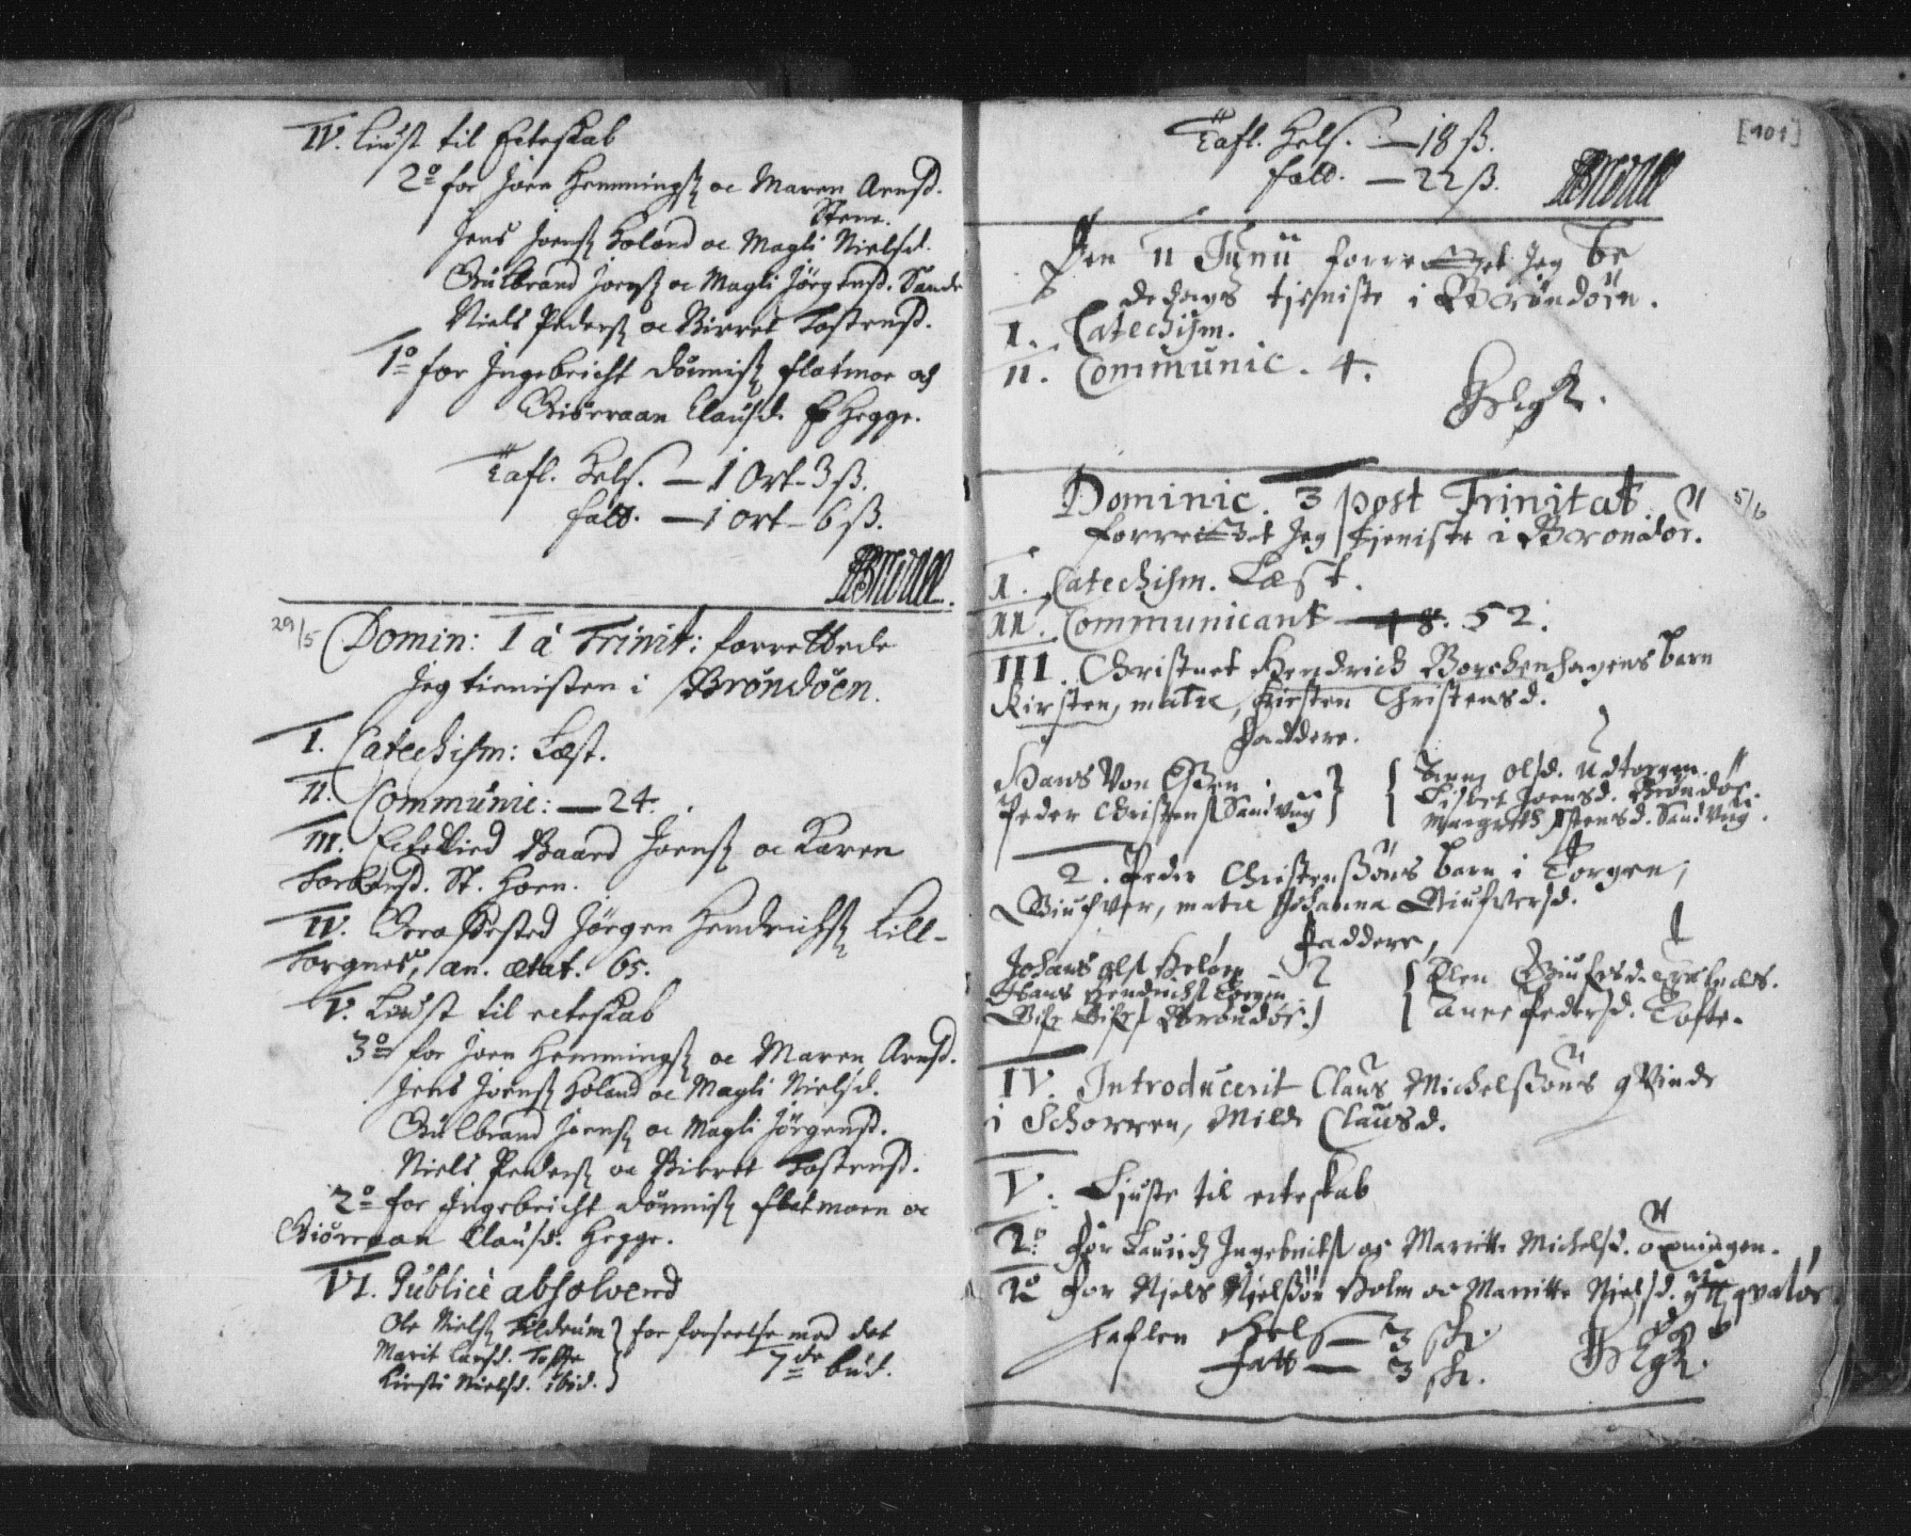 IV. Liust til Ecteskab
2o for Joen Hemmingß oc Maren Arnsd.
Stene.
Jens Joenß Holand oc Magli Nielsd.
Gulbrand Joenß oc Magli Jörgensd. Sande
Niels Pederß oc Birret Tostensd.
1o for Ingebricht Dönnisß Flatmoe och
Giörraan Clausd. Hegge.
Tafl. Hels. — 1 Ort - 3 ß.
fatt. — 1 ort - 6 ß.
29/5 Domin: 1 à Trinit: forrettede
Jeg tienisten i Bröndöen.
I. Catechism: Læst.
II. Communic: — 24.
III. Ectevied Baard Joenß oc Karen
St. Horn.
IV. Græsfested Jörgen Hendrichß Lill-
Torgnes, an. ætat. 65.
V. Liust til ecteskab
3o for Joen Hemmingß oc Maren Arnsd.
Jens Joenß Holand oc Magli Nielsd.
Gulbrand Joenß oc Magli Jörgensd.
Niels Pederß oc Birret Tostensd.
2o for Ingebricht Dönnisß Flatmoen oc
Giörraan Clausd. Hegge.
VI. Publicè absolverd
Ole Nielß Tildrum } for forseelse mod det
Marit Larsd. Toffte
7de bud.
Kirsti Nielsd. ibid. }
[101]
Tafl. Hels. — 18 ß.
fatt. — 22 ß.
Den 11 Junii forrettet Jeg be
dedags tjeniste i Bröndöen.
I. Catechism.
II. Communic. 4.
Dominic. 3 post Trinitat. 5/6
forrettet Jeg tjeniste i Bröndöe.
I. Catechism. Læst.
II. Communicant 48. 52.
III. Christnet Hendrich Borchenhagens barn
Kirsten, matre, Kirsten Christensd.
Faddere.
Hans Von Essen
Anne Olsd. Udtorgen.
Peder Christensß Sandvng }
{ Lisbet Joensd. Bröndöe.
Margreth Stensd. Sandvng.
2. Peder Christenßöns barn i Torgen,
Giufver, matre Johanna Giufversd.
Faddere,
Johans Olsß
{ Elen
Hans Hendrichsß Torgen
Bröndöe. }
{ Anne Pedersd. Tofte.
IV. Introducerit Claus Michelßöns qvinde
i Schorren, Mild Clausd.
V. Ljuste til ecteskab
2o for Laurids Ingebritsß oc Marritte Michelsd.
1o for Njels Njelßön Holm oc Marritte Njelsd.
Taflen Hels — 3 sk.
Fatt — 3 sk.